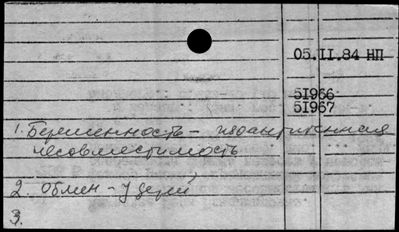 05.II.84 НП
5I966
5I967
1. Беременность – изоантигенная
несовместимость
2. Обмен – у детей
3.